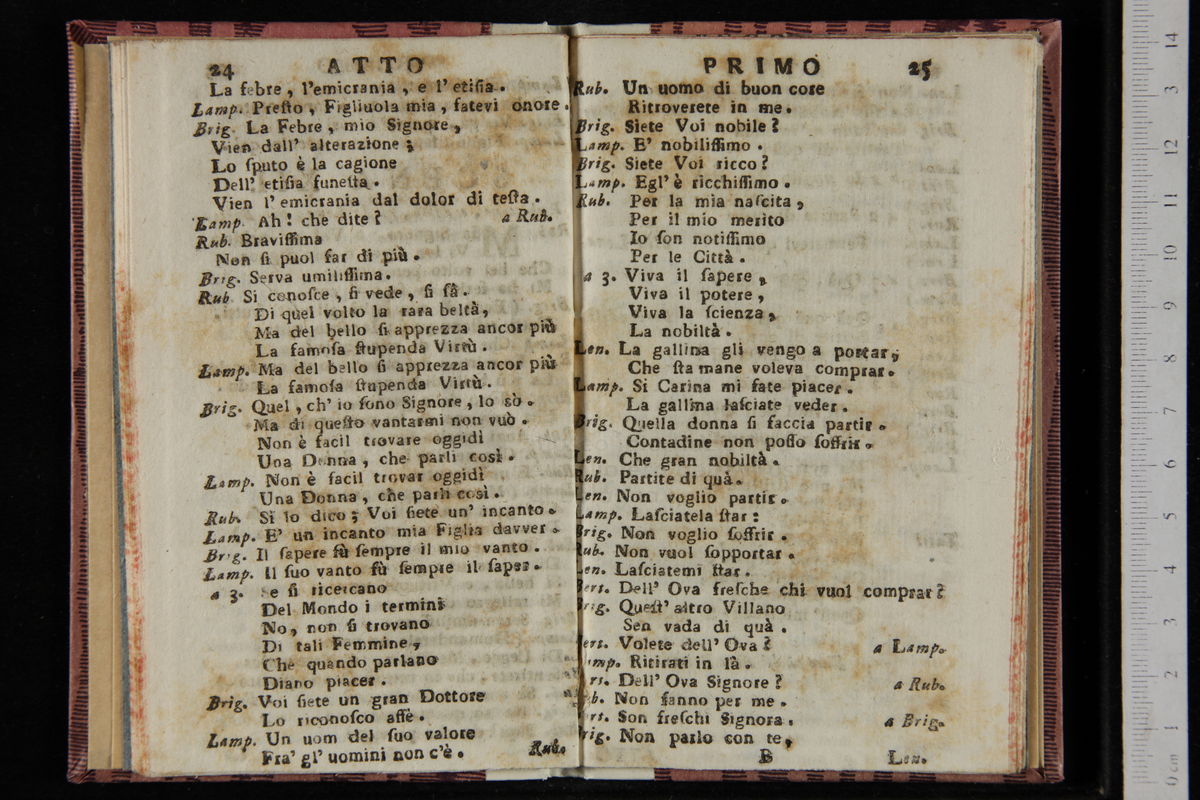 24 ATTO
La febre, l'emicrania, e l'etisia.
Lamp. Presto, Figliuola mia, fatevi onore.
Brig. La Febre, mio Signore,
Vien dall' alterazione;
Lo sputo è la cagione
Dell' etisia funesta.
Vien l'emicrania dal dolor di testa.
Lamp. Ah! che dite? a Rub.
Rub. Bravissima
Non si puol far di più.
Brig. Serva umilissima.
Rub Si conosce, si vede, si sà.
Di quel volto la rara beltà,
Ma del bello si apprezza ancor più
La famosa stupenda Virtù.
Lamp. Ma del bello si apprezza ancor più
La famosa stupenda Virtù.
Brig. Quel, ch' io sono Signore, lo sò.
Ma di questo vantarmi non vuò.
Non è facil trovare oggidì
Una Donna, che parli così.
Lamp. Non è facil trovar oggidì
Una Donna, che parli così.
Rub. Si lo dico; Voi siete un' incanto.
Lamp. E' un incanto mia Figlia davver.
Brig. Il sapere fù sempre il mio vanto.
Lamp. Il suo vanto fù sempre il saper.
a 3. Se si ricercano
Del Mondo i termini
No, non si trovano
Di tali Femmine,
Che quando parlano
Diano piacer.
Brig. Voi siete un gran Dottore
Lo riconosco affè.
Lamp. Un uom del suo valore
Fra' gl' uomini non c'è. Rub.
PRIMO 25
Rub. Un uomo di buon core
Ritroverete in me.
Brig. Siete Voi nobile?
Lamp. E' nobilissimo.
Brig. Siete Voi ricco?
Lamp. Egl' è ricchissimo.
Rub. Per la mia nascita,
Per il mio merito
Io son notissimo
Per le Città.
a 3. Viva il sapere,
Viva il potere,
Viva la scienza,
La nobiltà.
Len. La gallina gli vengo a portar,
Che sta mane voleva comprar.
Lamp. Si Carina mi fate piacer.
La gallina lasciate veder.
Brig. Quella donna si faccia partir.
Contadine non posso soffrir.
Len. Che gran nobiltà.
Rub. Partite di quà.
Len. Non voglio partir.
Lamp. Lasciatela star:
Brig. Non voglio soffrir.
Rub. Non vuol sopportar.
Len. Lasciatemi star.
Bert. Dell' Ova fresche chi vuol comprar?
Brig. Quest' altro Villano
Sen vada di quà.
Bert. Volete dell' Ova? a Lamp.
Lamp. Ritirati in là.
Bert. Dell' Ova Signore? a Rub.
Rub. Non fanno per me.
Bert. Son freschi Signora. a Brig.
Brig. Non parlo con te,
B Len.
0 cm 1 2 3 4 5 6 7 8 9 10 11 12 13 14